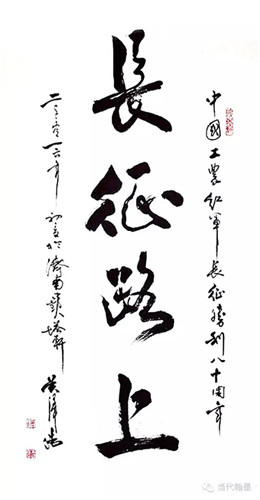 中國工農紅軍長征勝利八十周年
長征路上
二零一六年初文於濟南
当代翰墨